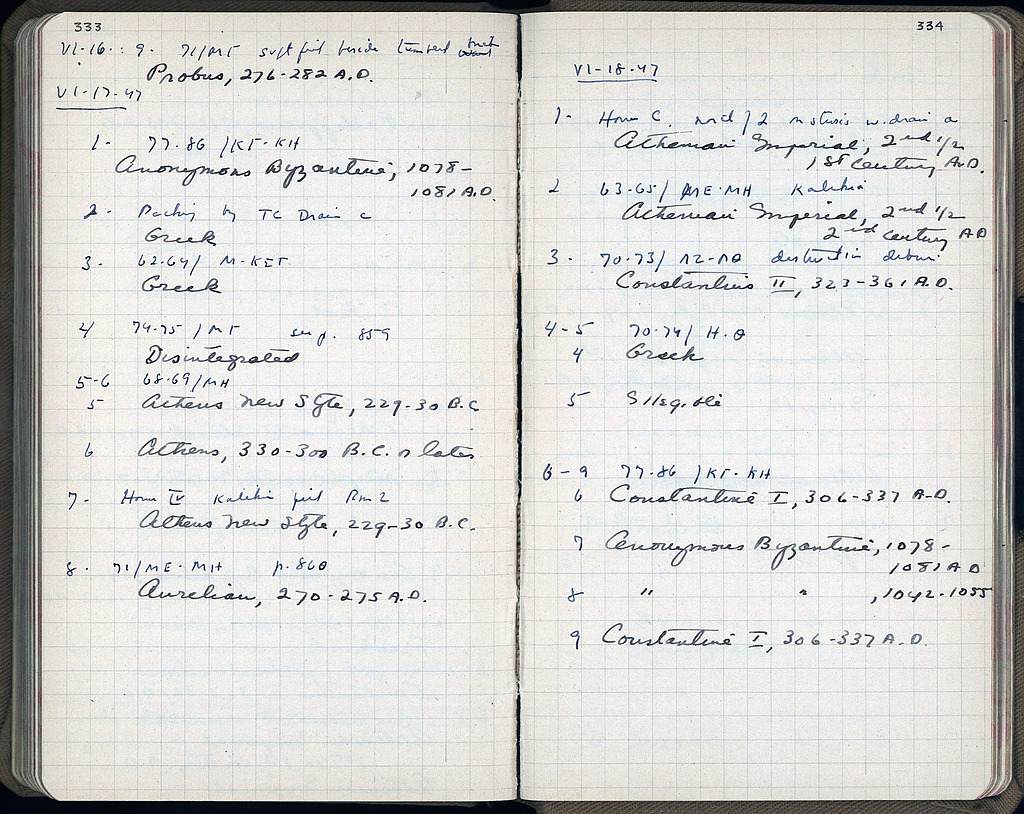 333
VI-16 : 9. 71/ΜΓ
Probus, 276-282 A.D.
VI-17-47
1- 77-86 /ΚΓ-ΚΗ
Anonymous Byzantine, 1078-
1081 A.D.
2- Packing by TC Drain c
Greek
3. 62-64/ Μ-ΚΕΤ
Greek
4 74-75 /ΜΓ p. 859
Disintegrated
5-6 68-69/ΜΗ
5 Athens New Style, 229-30 B.C
6 Athens, 330-300 B.C. or later
7- House IV Rm 2
Athens New Style, 229-30 B.C.
8. 71/ΜΕ-ΜΗ p. 860
Aurelian, 270-275 A.D.
334
VI-18-47
1- House C. w. drain a
Athenian Imperial, 2nd 1/2
1st Century A.D.
2 63-65/ ΜΕ-ΜΗ
Athenian Imperial, 2nd 1/2
2nd Century AD
3. 70-73/ destruction debris
Constantius II, 323-361 A.D.
4-5 70-74/
4 Greek
5 Illegible
6-9 77-86 /ΚΓ-ΚΗ
6 Constantine I, 306-337 A.D.
7 Anonymous Byzantine, 1078-
1081 A D
8 " " , 1042-1055
9 Constantine I, 306-337 A.D.